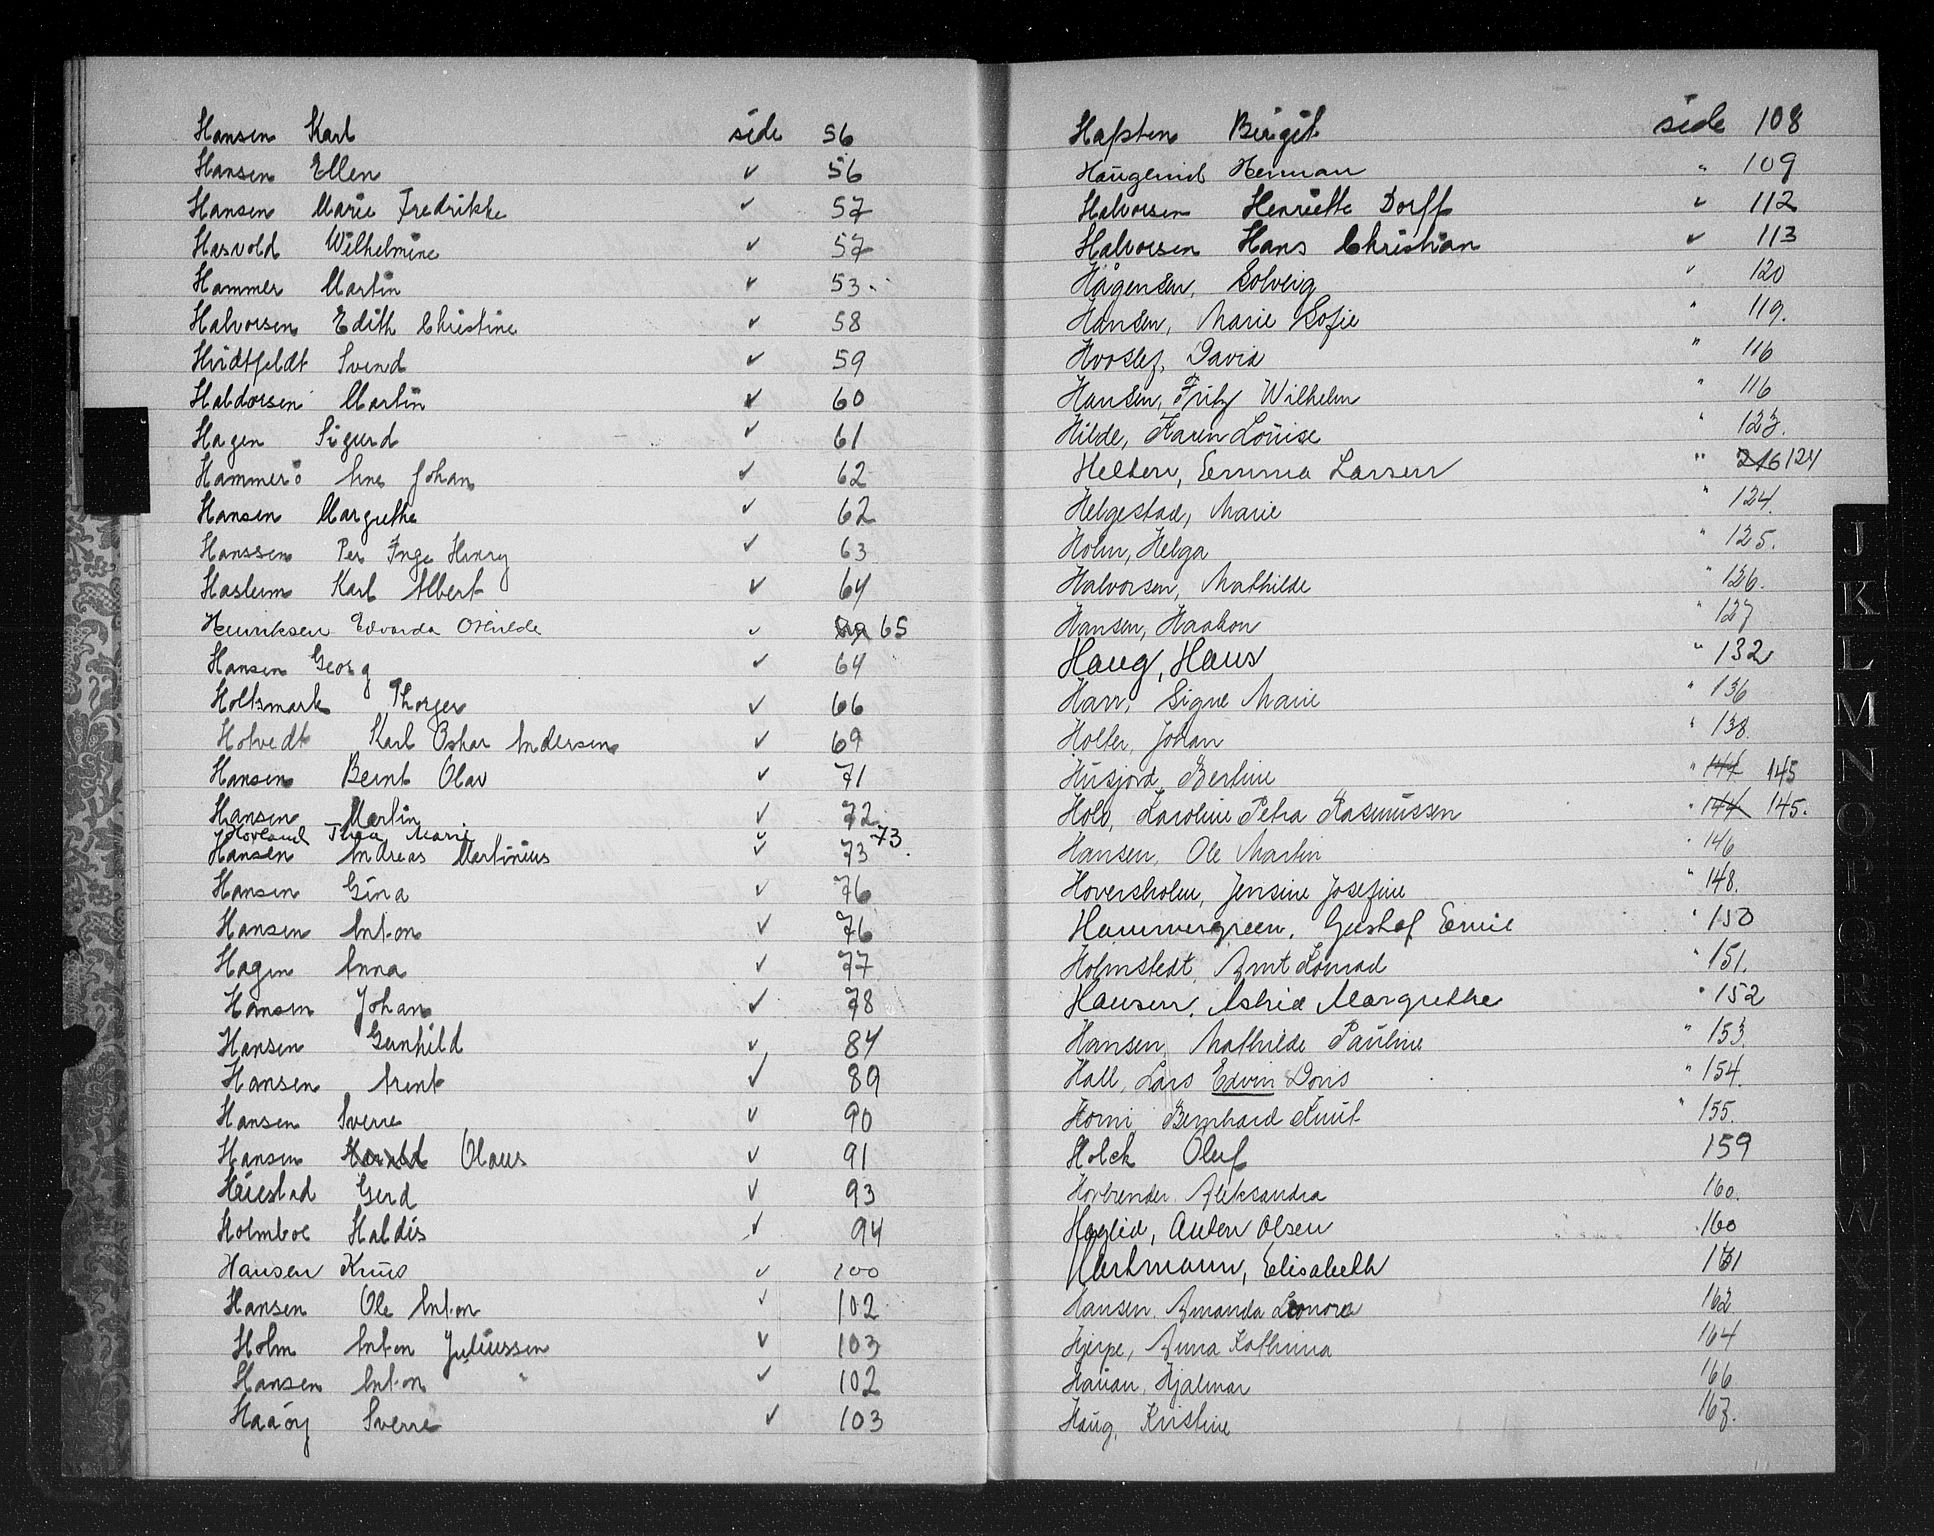 Hansen Karl side 56
Hansen Ellen ✓ 56
Hansen Marie Fredrikke ✓ 57
Hasvold Wilhelmine ✓ 57
Hammer Martin ✓ 53.
Halvorsen Edith Christine ✓ 58
Hvidtfeldt Svend ✓ 59
Haldorsen Martin ✓ 60
Hagen Sigurd ✓ 61
Hammerö Arne Johan ✓ 62
Hansen Margrethe ✓ 62
Hanssen Per Inge Henry ✓ 63
Haslum Karl Albert ✓ 64
Henriksen Edvarda Othilde ✓ 65
Hansen Georg ✓ 64
Holtsmark Thorger ✓ 66
Hotvedt Karl Oskar Andersen ✓ 69
Hansen Bernt Olav ✓ 71
Hansen Martin ✓ 72
Hovland Thea Marie ✓ 73
Hansen Andreas Martinius ✓ 73.
Hansen Gina ✓ 76
Hansen Anton ✓ 76
Hagen Anna ✓ 77
Hansen Johan ✓ 78
Hansen Gernhild ✓ 84
Hansen Arent ✓ 89
Hansen Sverre ✓ 90
Hansen Harald Olaus ✓ 91
Häiestad Gerd ✓ 93
Holmboe Haldis ✓ 94
Hansen Knus ✓ 100
Hansen Ole Anton ✓ 102
Holm Anton Juliussen ✓ 103
Hansen Anton " ✓ 102
Haaöy Sverre ✓ 103
Hafsten Birgit side 108
Haugerud Herman " 109
Halvorsen Henriette Dorff ✓ 112
Halvorsen Hans Christian ✓ 113
Hågensen, Solveig ✓ 120
Hansen, Marie Sofie " 119.
Hvoslef, David " 116
Hansen, Fritz Wilhelm " 116
Hilde, Karen Louise " 123.
Helben, Emma Larsen " 216 124
Helgestad, Marie " 124.
Holm, Helga " 125.
Halvorsen, Mathilde " 126.
Hansen, Haakon " 127
Haug, Hans " 132
Harr, Signe Marie " 136
Holter, Johan " 138.
Husjord, Bertine " 144 145
Holo, Karoline Petra Rasmussen " 144 145.
Hansen, Ole Martin " 146
Hoversholm, Jensine Josefine " 148.
Hammergreen, Gustaf Emil " 150
Holmstedt, Arnt Konrad " 151.
Hansen, Astrid Margrethe " 152
Hansen, Mathilde Pauline " 153
Hall, Lars Edvin Doris " 154.
Horni Bernhard Knut " 155.
Holck Oluf 159
Horbrender Aleksandra 160.
Haglid, Anton Olsen 160
Hartmann, Elisabeth 161
Hansen, Amanda Leonora 162
Hjerpe, Anna Kathrina 164
Hauan, Hjalmar 166
Haug, Kristine 167.
J
K
L
M
N
O
P
Q
R
S
T
U
W
X
Y